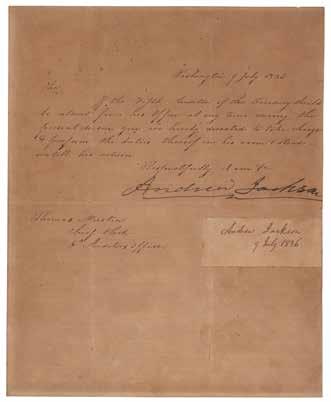 Washington 9 July 1836
Sir,
If the Fifth Auditor of the Treasury should
be absent from his Office at any time during the
present season you are hereby directed to take charge
& perform the duties thereof in his room & stead
until his return
Respectfully I am &c
Andrew Jackson
Thomas
Chief Clerk
5 Auditors Office
Andrew Jackson
9 July 1836